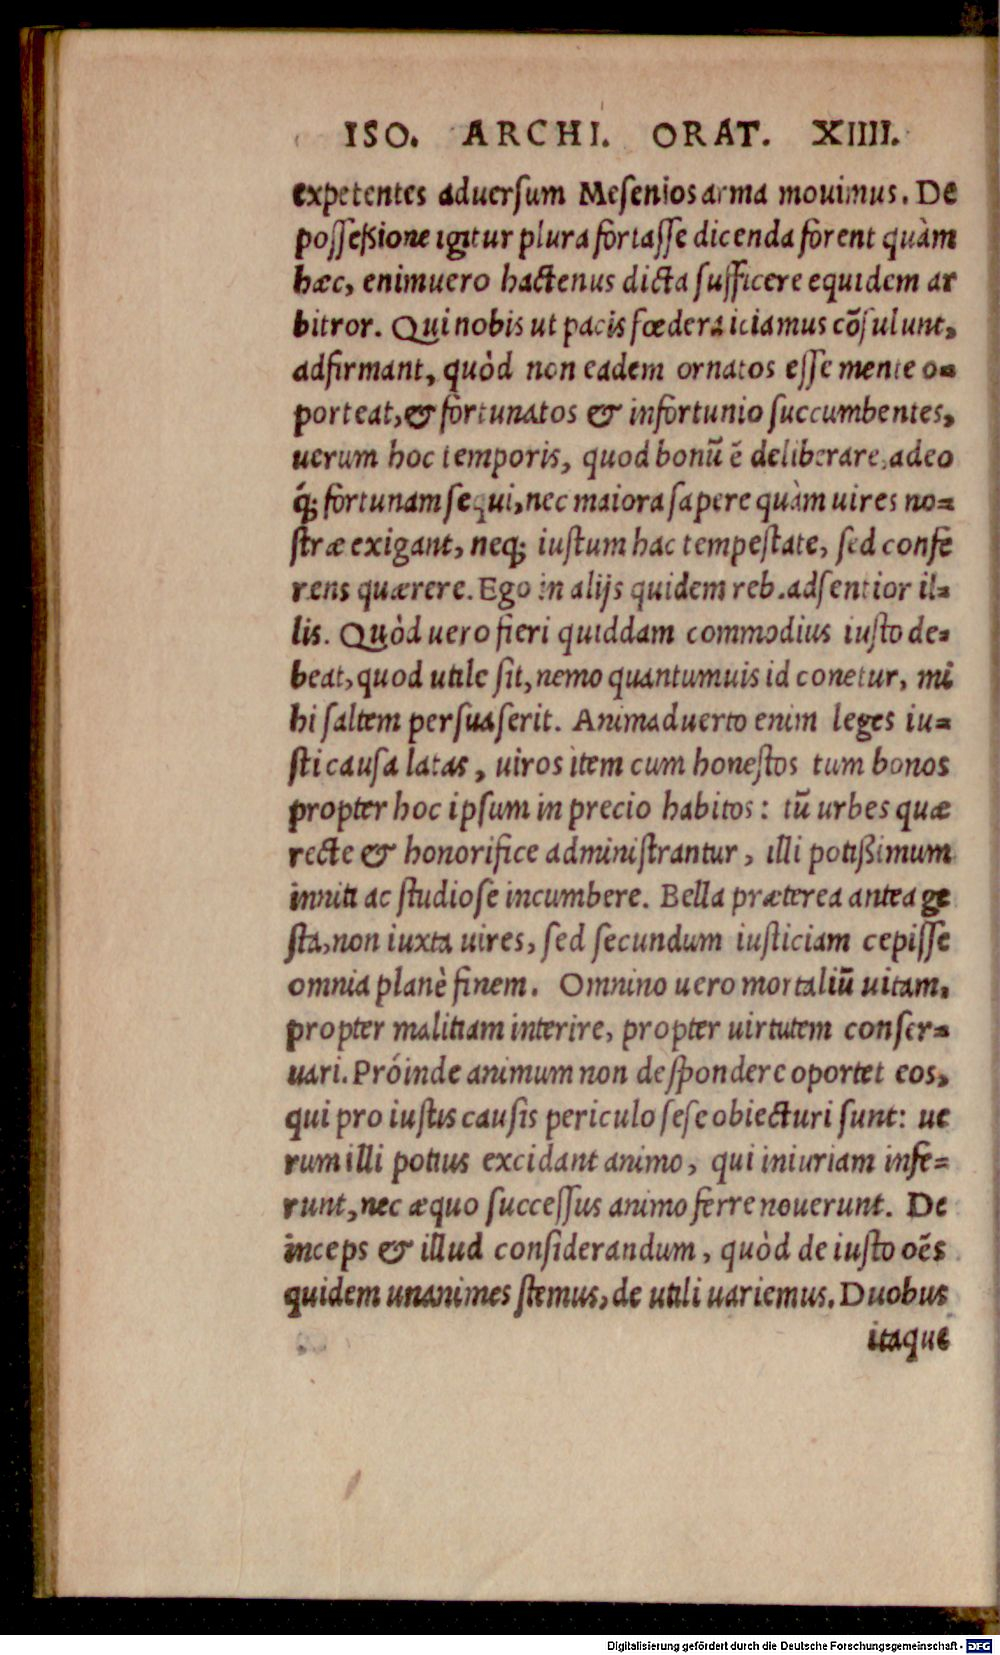 ISO. ARCHI. ORAT. XIIII.
expetentes aduerſum Meſenios arma mouimus. De
poſſeßione igitur plura fortaſſe dicenda forent quàm
hæc, enimuero hactenus dicta ſufficere equidem ar
bitror. Qui nobis ut pacis fœdera iciamus cõſulunt,
adfirmant, quòd non eadem ornatos eſſe mente o=
porteat, & fortunatos & infortunio ſuccumbentes,
uerum hoc temporis, quod bonũ ẽ deliberare, adeo
q́; fortunam ſequi, nec maiora ſapere quàm uires no=
ſtræ exigant, neq; iuſtum hac tempeſtate, ſed confe
rens quærere. Ego in alijs quidem reb. adſentior il=
lis. Quòd uero fieri quiddam commodius iuſto de=
beat, quod utile ſit, nemo quantumuis id conetur, mi
hi ſaltem perſuaſerit. Animaduerto enim leges iu=
ſti cauſa latas, uiros item cum honeſtos tum bonos
propter hoc ipſum in precio habitos: tũ urbes quæ
recte & honorifice adminiſtrantur, illi potißimum
inniti ac ſtudioſe incumbere. Bella præterea antea ge
ſta, non iuxta uires, ſed ſecundum iuſticiam cepiſſe
omnia planè finem. Omnino uero mortaliũ uitam,
propter malitiam interire, propter uirtutem conſer=
uari. Próinde animum non deſpondere oportet eos,
qui pro iuſtis cauſis periculo ſeſe obiecturi ſunt: ue
rum illi potius excidant animo, qui iniuriam infe=
runt, nec æquo ſucceſſus animo ferre nouerunt. De
inceps & illud conſiderandum, quòd de iuſto oẽs
quidem unanimes ſtemus, de utili uariemus. Duobus
itaque
Digitalisierung gefördert durch die Deutsche Forschungsgemeinschaft - DFG